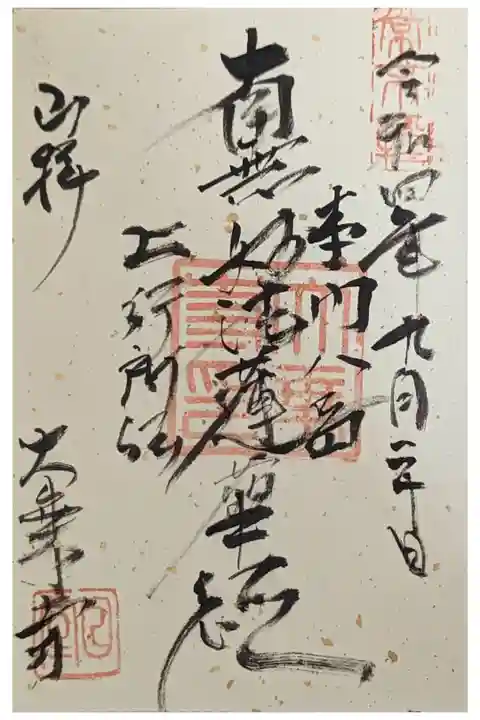 令和四年九月二十日
本門八品
南無妙法蓮華経
上行所伝
山科
大乗寺